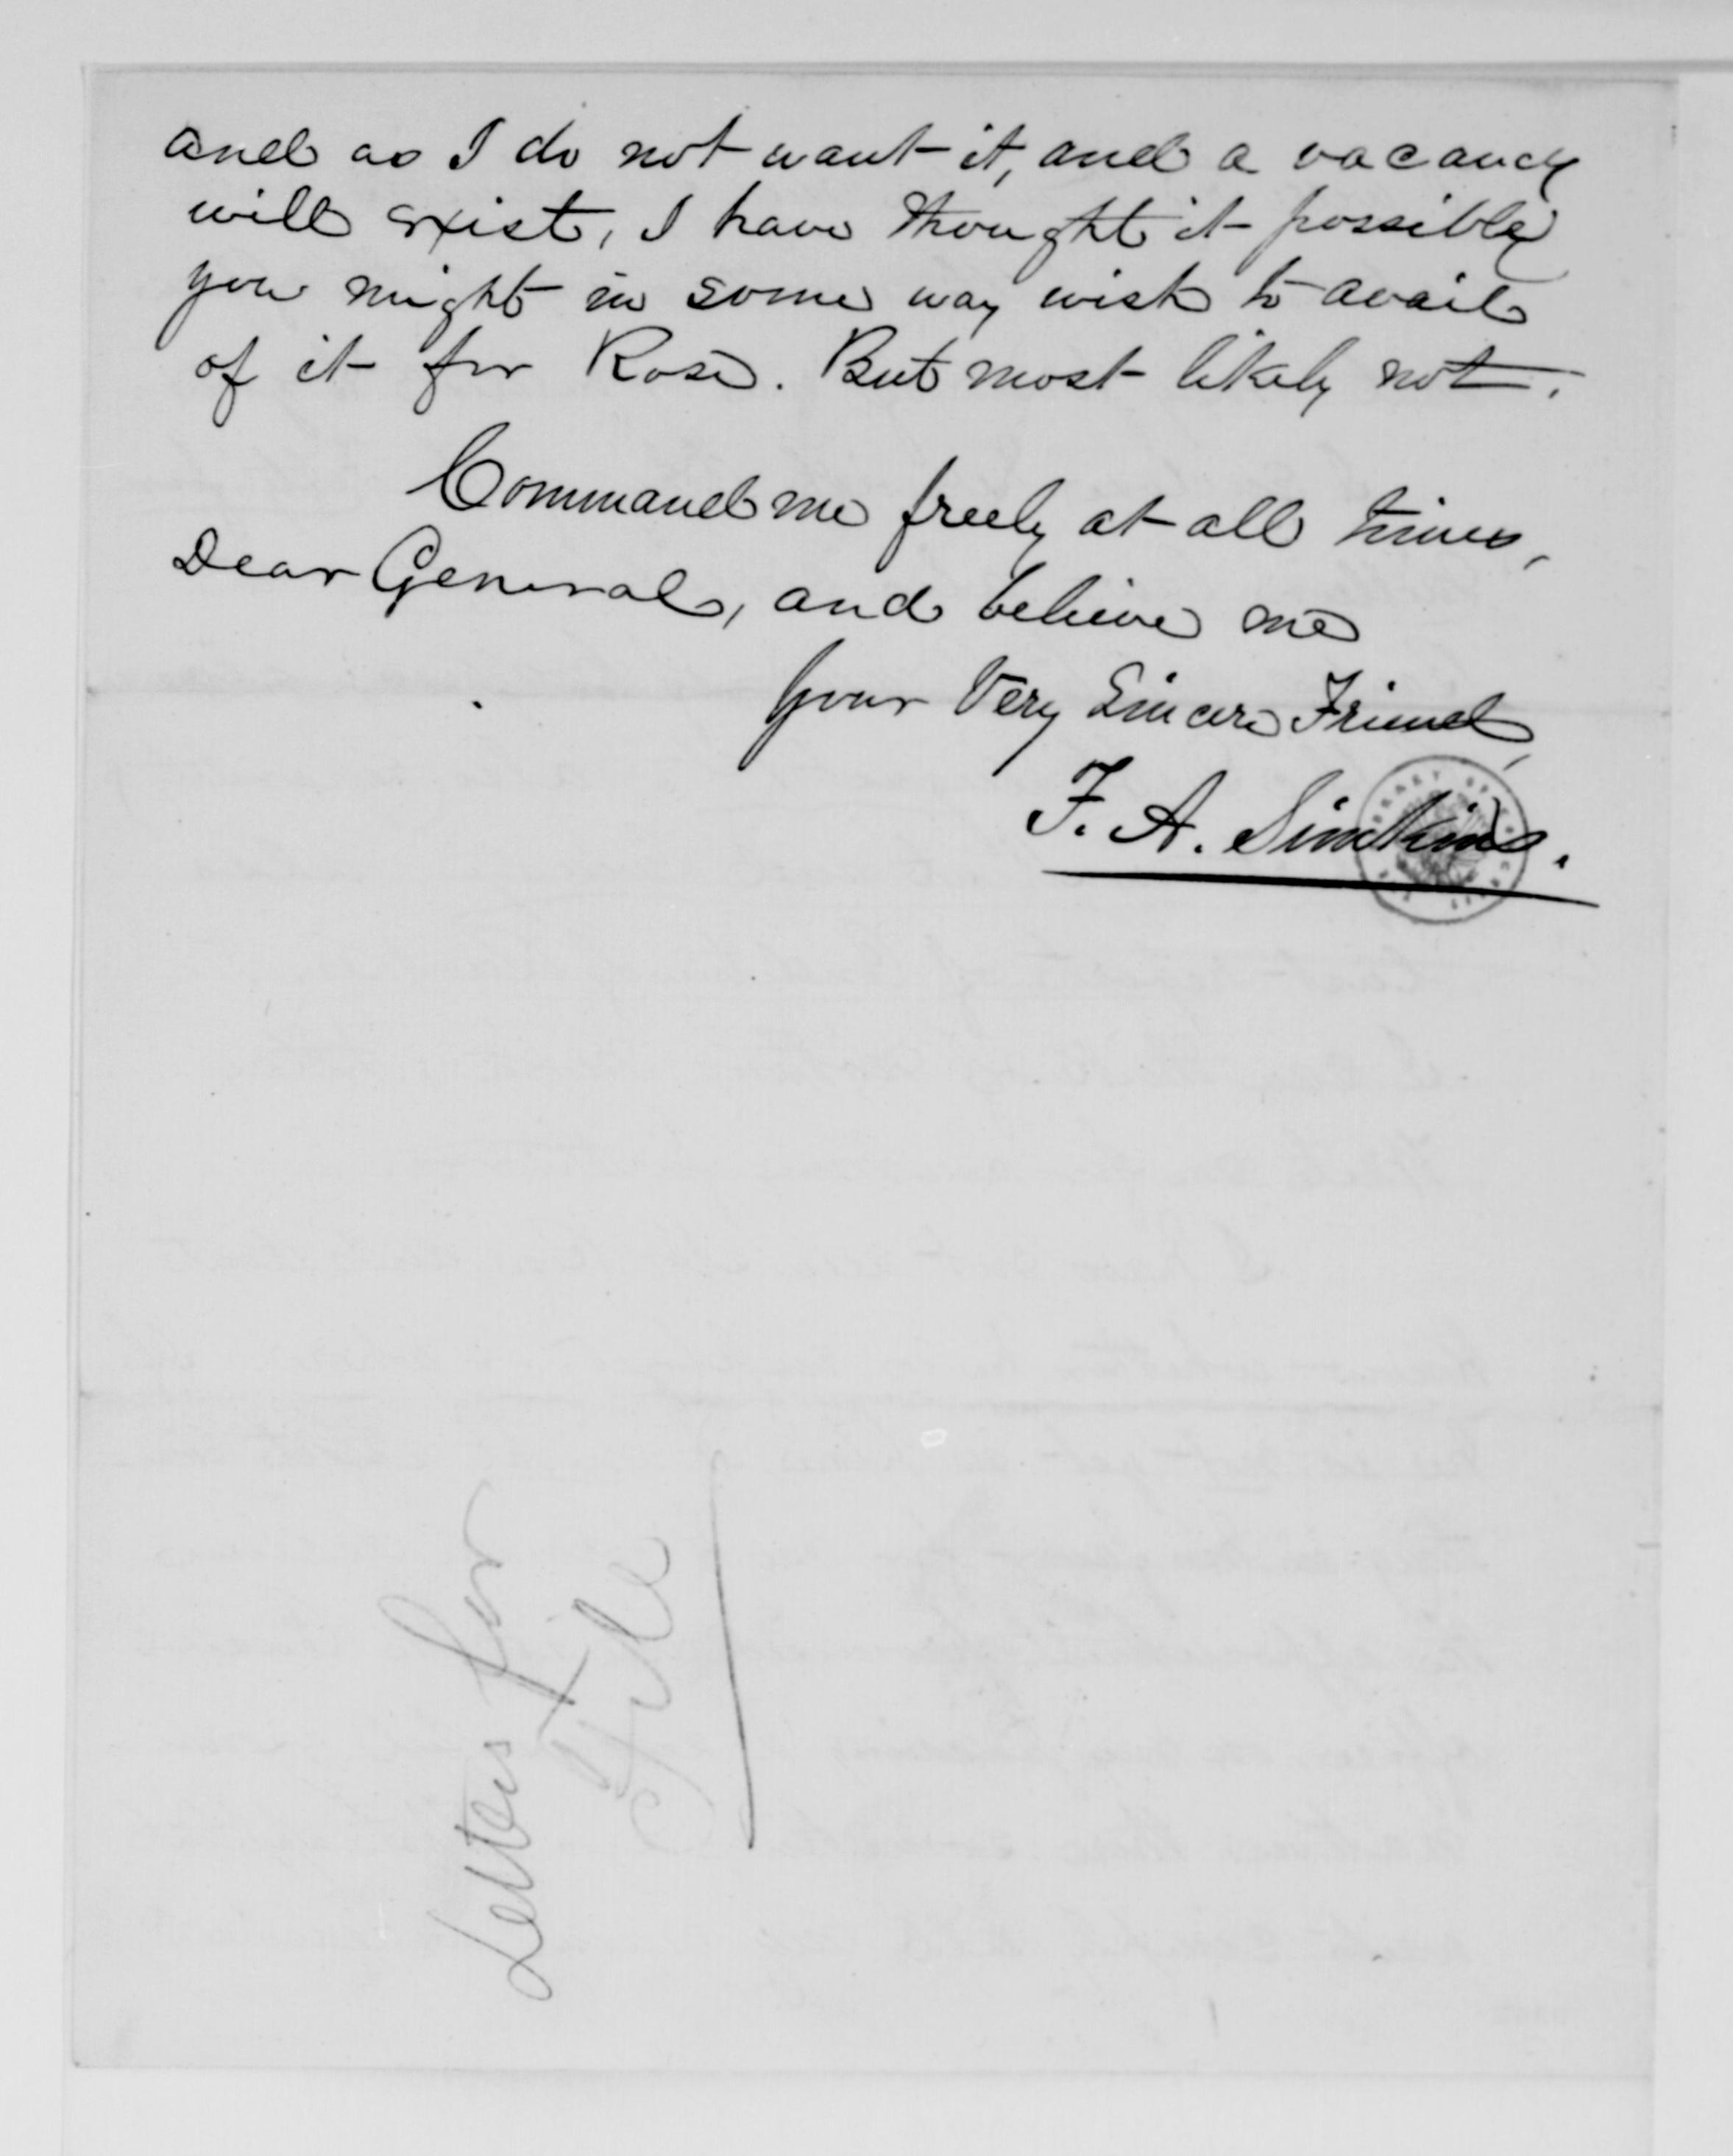 and as I do not want it, and a vacancy
will exist, I have thought it possible
you might in some way wish to avail
of it for Rose. But most likely not.
Command me freely at all times,
Dear General, and believe me
Your Very Sincere Friend,
F. A. Simkins.
Letters for
File